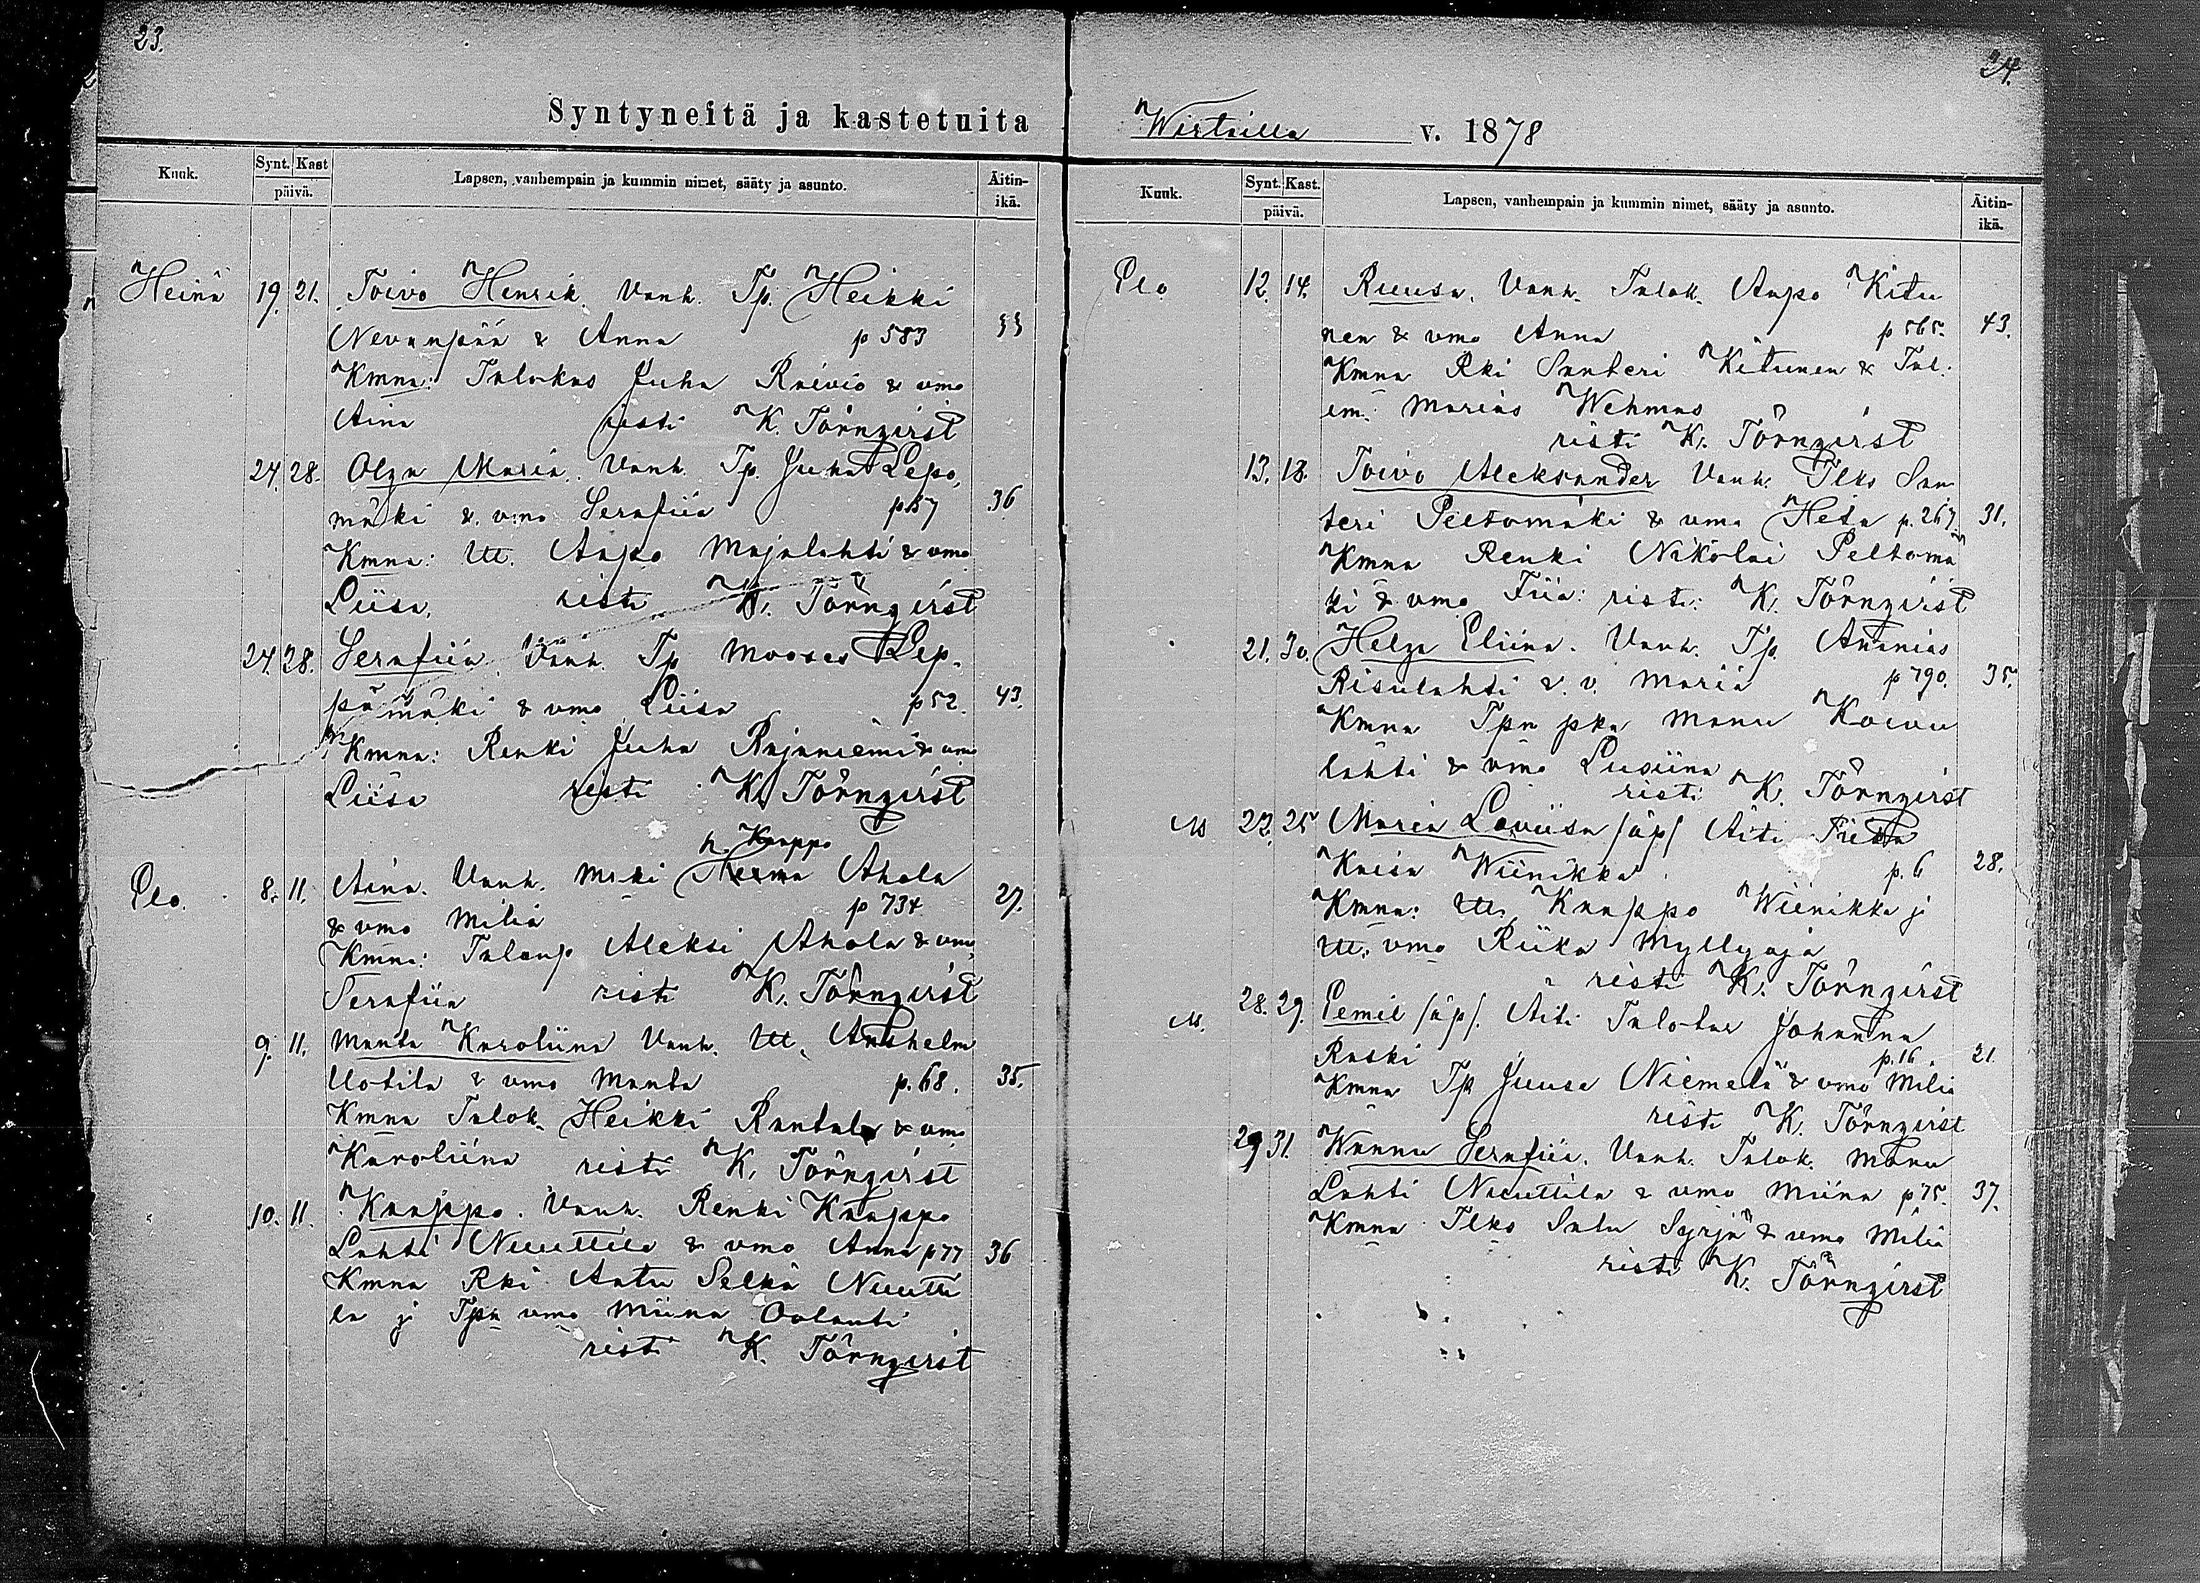 23.
Syntyneitä ja kastetuita
Kuuk.
Synt. Kast
päivä.
Lapsen, vanhempain ja kummin nimet, sääty ja asunto.
Äitin-
ikä.
Heinä 19. 21. Toivo Henrik. Vanh. Tp. Heikki
Nevanpää & Anna p 583 33
Kmna: Talokas Juha Raivio & vmo
Aina risti K. Törnqvist
24. 28. Olga Maria. Vanh. Tp. Juha Lepo,
mäki & vmo Serafiia 36
Kmna: Itl. Aapo Majalahti & vmo
Liisa, risti K. Törnqvist
24. 28. Serafiia. Vanh. Tp Mooses Lep-
pämäki & vmo Liisa p 52. 43.
Kmna: Renki Juha Rajaniemi & vmo
Liisa risti K. Törnqvist
Kaappo
Elo. 8. 11. Aina. Vanh. Mäki Ahola
& vmo Milia p 734 29.
Kmna: Talonp Aleksi Ahola & vmo
Serafiia risti K. Törnqvist
9. 11. Manta Karoliina Vanh. Itl. Anshelm
Uotila & vmo Manta p. 68. 35.
Kmna Talok. Heikki Rantala & vmo
Karoliina risti K. Törnqvist
10. 11. Kaappo. Vanh. Renki Kaappo
Lahti Nuuttila & vmo Anna p 77 36
Kmna Rki Antu Selkä Nuutti
la ja Tpn vmo Miina Oolanti
risti K. Törnqvist
24.
Wirtailla v. 1878
Kuuk.
Synt. Kast.
päivä.
Lapsen, vanhempain ja kummin nimet, sääty ja asunto.
Äitin-
ikä.
Elo 12. 14. Ruusa. Vanh. Talok. Aapo Kitu
nen & vmo Anna p 565. 43.
Kmna Rki Santeri Kitunen & Tal.
em. Marias Wehmas
risti K. Törnqvist
13. 18. Toivo Aleksander Vanh. Itlks San
teri Peltomäki & vmo Heta p. 267. 31.
Kmna Renki Nikolai Peltomä
ki & vmo Fiia: risti: K. Törnqvist
21. 30. Helga Eliina. Vanh. Tp. Ananias
Risulahti & v. Maria p 790. 35.
Kmna Tpn pka Manu Koivu
lahti & vmo Lusiina
risti K. Törnqvist
Ms 22. 25 Maria Loviisa /äp/ Äiti
Kaisa Wiinikka p. 6 28.
Kmna: Itl. Kaappo Wiinikka ja
Itl. vmo Riika Myllyoja
risti K. Törnqvist
Ms. 28. 29. Eemil /äp/. Äiti Talotar Johanna
Raski p. 16. 21
Kmna Tp Juusa Niemelä & vmo Milia
risti K. Törnqvist
29 31. Wannu Serafiia. Vanh. Talok. Manu
Lahti Nuuttila & vmo Miina p 75. 37.
Kmna Itlks Salu Syrjä & vmo Milia
risti K. Törnqvist